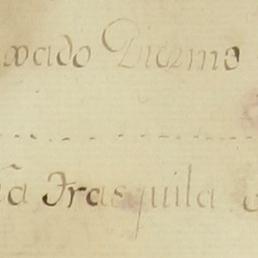 vado Diezmo
ña Frasquila